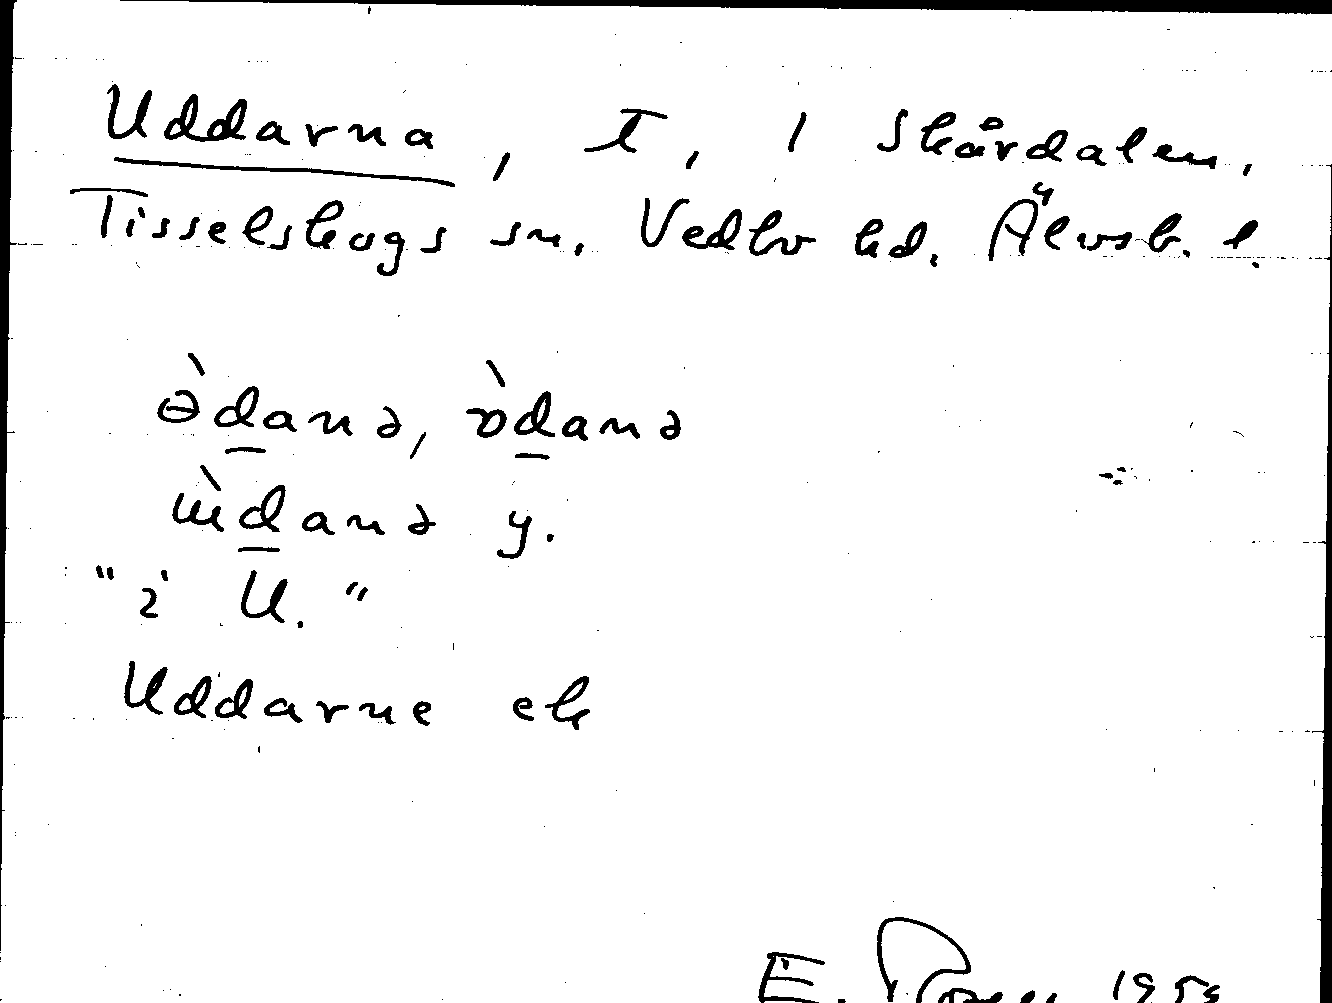 Uddarna, T, 1 Skårdalen,
Tisselskogs sn. Vedbo hd. Älvsb. l.
ə̀danə, ɒ̀danə
ɯ̀danə y.
"i U."
Uddarne ek
E. 195